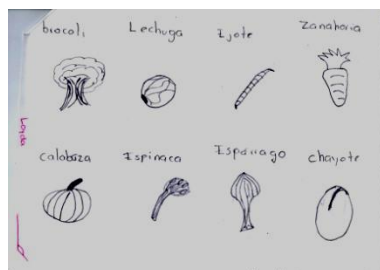 brocoli Lechuga Ejote Zanahoria
Loyda
calabaza Espinaca Espárrago chayote